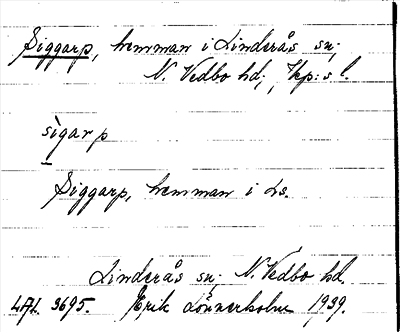 Siggarp, hemman i Linderås sn;
N. Vedbo hd; Jkp:s l.
sìgarp
Siggarp, hemman i Ls.
Linderås sn; N. Vedbo hd.
3695. Erik Lönnerholm 1939.